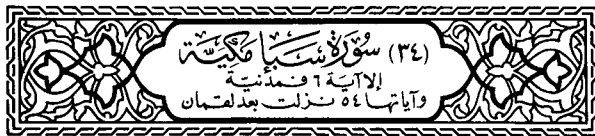 (٣٤) سُورَة سَبَإٍ مَكِّيَّة
إلا آية ٦ فمدنيّة
وآياتها ٥٤ نزلت بعد لقمان